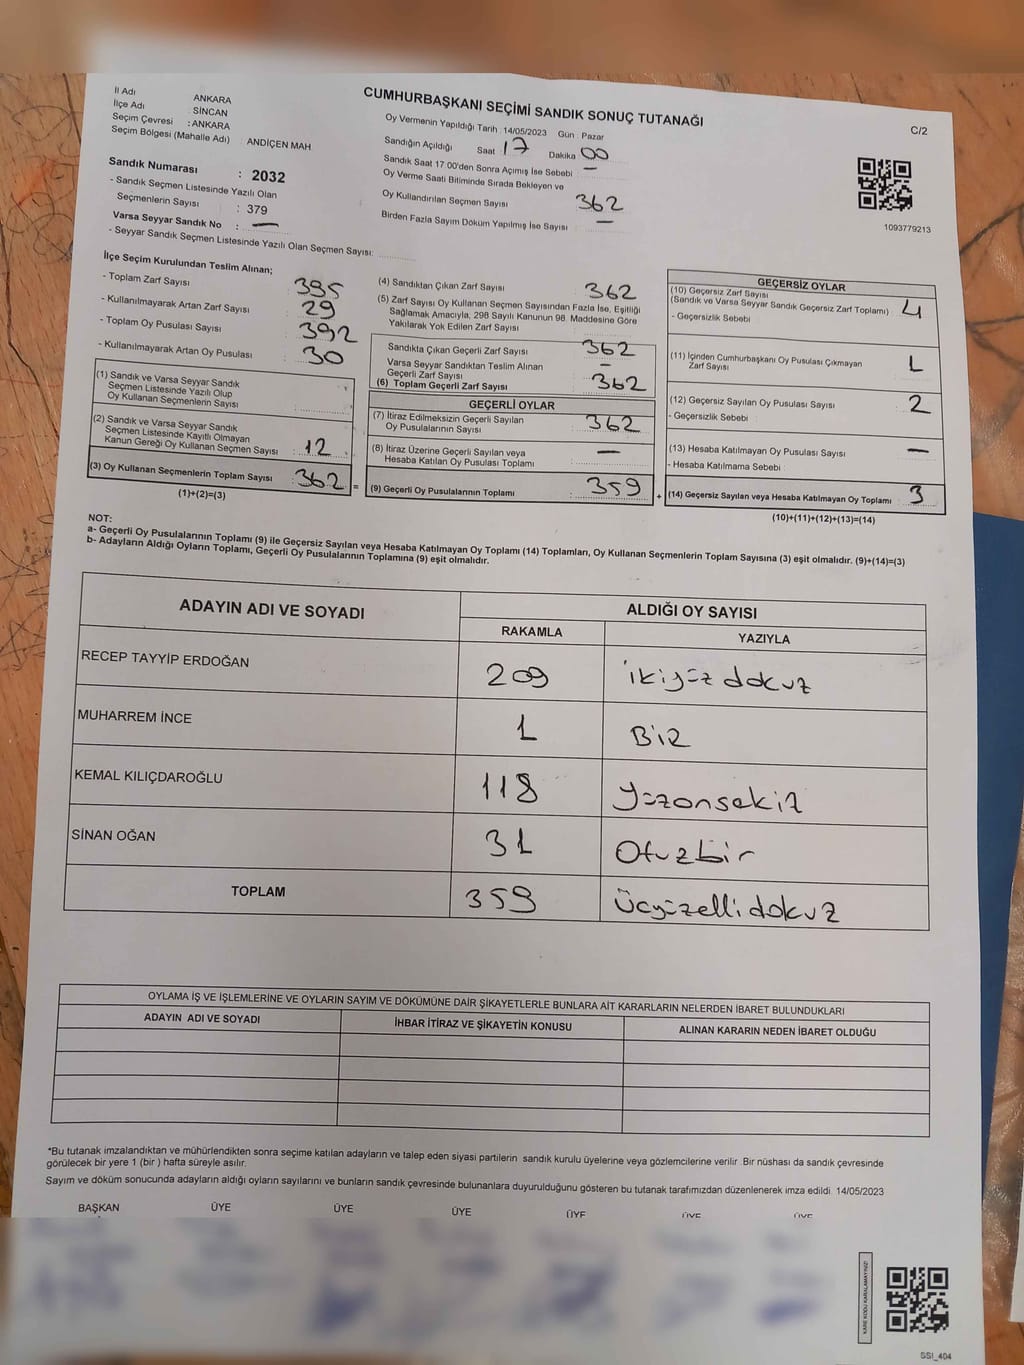 İl Adı ANKARA
İlçe Adı : SİNCAN
Seçim Çevresi : ANKARA
Seçim Bölgesi (Mahalle Adı) ANDİÇEN MAH
Sandık Numarası : 2032
- Sandık Seçmen Listesinde Yazılı Olan
Seçmenlerin Sayısı : 379
Varsa Seyyar Sandık No : —
- Seyyar Sandık Seçmen Listesinde Yazılı Olan Seçmen Sayısı:
CUMHURBAŞKANI SEÇİMİ SANDIK SONUÇ TUTANAĞI
Oy Vermenin Yapıldığı Tarih : 14/05/2023 Gün : Pazar
Sandığın Açıldığı Saat 17 Dakika 00
Sandık Saat 17:00'den Sonra Açımış İse Sebebi : —
Oy Verme Saati Bitiminde Sırada Bekleyen ve
Oy Kullandırılan Seçmen Sayısı 362
Birden Fazla Sayım Döküm Yapılmış İse Sayısı —
C/2
1093779213
İlçe Seçim Kurulundan Teslim Alınan;
- Toplam Zarf Sayısı 395
- Kullanılmayarak Artan Zarf Sayısı : 29
- Toplam Oy Pusulası Sayısı : 392
- Kullanılmayarak Artan Oy Pusulası : 30
(1) Sandık ve Varsa Seyyar Sandık
Seçmen Listesinde Yazılı Olup
Oy Kullanan Seçmenlerin Sayısı :
(2) Sandık ve Varsa Seyyar Sandık
Seçmen Listesinde Kayıtlı Olmayan
Kanun Gereği Oy Kullanan Seçmen Sayısı : 12
(3) Oy Kullanan Seçmenlerin Toplam Sayısı : 362 =
(1)+(2)=(3)
(4) Sandıktan Çıkan Zarf Sayısı : 362
(5) Zarf Sayısı Oy Kullanan Seçmen Sayısından Fazla İse, Eşitliği
Sağlamak Amacıyla, 298 Sayılı Kanunun 98. Maddesine Göre
Yakılarak Yok Edilen Zarf Sayısı :
Sandıkta Çıkan Geçerli Zarf Sayısı : 362
Varsa Seyyar Sandıktan Teslim Alınan
Geçerli Zarf Sayısı : —
(6) Toplam Geçerli Zarf Sayısı : 362
GEÇERLİ OYLAR
(7) İtiraz Edilmeksizin Geçerli Sayılan
Oy Pusulalarının Sayısı : 362
(8) İtiraz Üzerine Geçerli Sayılan veya
Hesaba Katılan Oy Pusulası Toplamı : —
(9) Geçerli Oy Pusulalarının Toplamı : 359 +
GEÇERSİZ OYLAR
(10) Geçersiz Zarf Sayısı
(Sandık ve Varsa Seyyar Sandık Geçersiz Zarf Toplamı) : 4
- Geçersizlik Sebebi
(11) İçinden Cumhurbaşkanı Oy Pusulası Çıkmayan
Zarf Sayısı 1
(12) Geçersiz Sayılan Oy Pusulası Sayısı : 2
- Geçersizlik Sebebi
(13) Hesaba Katılmayan Oy Pusulası Sayısı : —
- Hesaba Katılmama Sebebi
(14) Geçersiz Sayılan veya Hesaba Katılmayan Oy Toplamı : 3
(10)+(11)+(12)+(13)=(14)
NOT:
a- Geçerli Oy Pusulalarının Toplamı (9) ile Geçersiz Sayılan veya Hesaba Katılmayan Oy Toplamı (14) Toplamları, Oy Kullanan Seçmenlerin Toplam Sayısına (3) eşit olmalıdır. (9)+(14)=(3)
b- Adayların Aldığı Oyların Toplamı, Geçerli Oy Pusulalarının Toplamına (9) eşit olmalıdır.
ADAYIN ADI VE SOYADI ALDIĞI OY SAYISI
RAKAMLA YAZIYLA
RECEP TAYYİP ERDOĞAN 209 ikiyüz dokuz
MUHARREM İNCE 1 Bir
KEMAL KILIÇDAROĞLU 118 yüzonsekiz
SİNAN OĞAN 31 Otuzbir
TOPLAM 359 Üçyüzelli dokuz
OYLAMA İŞ VE İŞLEMLERİNE VE OYLARIN SAYIM VE DÖKÜMÜNE DAİR ŞİKAYETLERLE BUNLARA AİT KARARLARIN NELERDEN İBARET BULUNDUKLARI
ADAYIN ADI VE SOYADI İHBAR İTİRAZ VE ŞİKAYETİN KONUSU ALINAN KARARIN NEDEN İBARET OLDUĞU
*Bu tutanak imzalandıktan ve mühürlendikten sonra seçime katılan adayların ve talep eden siyasi partilerin sandık kurulu üyelerine veya gözlemcilerine verilir. Bir nüshası da sandık çevresinde
görülecek bir yere 1 (bir) hafta süreyle asılır.
Sayım ve döküm sonucunda adayların aldığı oyların sayılarını ve bunların sandık çevresinde bulunanlara duyurulduğunu gösteren bu tutanak tarafımızdan düzenlenerek imza edildi. 14/05/2023
BAŞKAN ÜYE ÜYE ÜYE ÜYE ÜYE ÜYE
KARE KODU KARALAMAYINIZ!
SSI_404